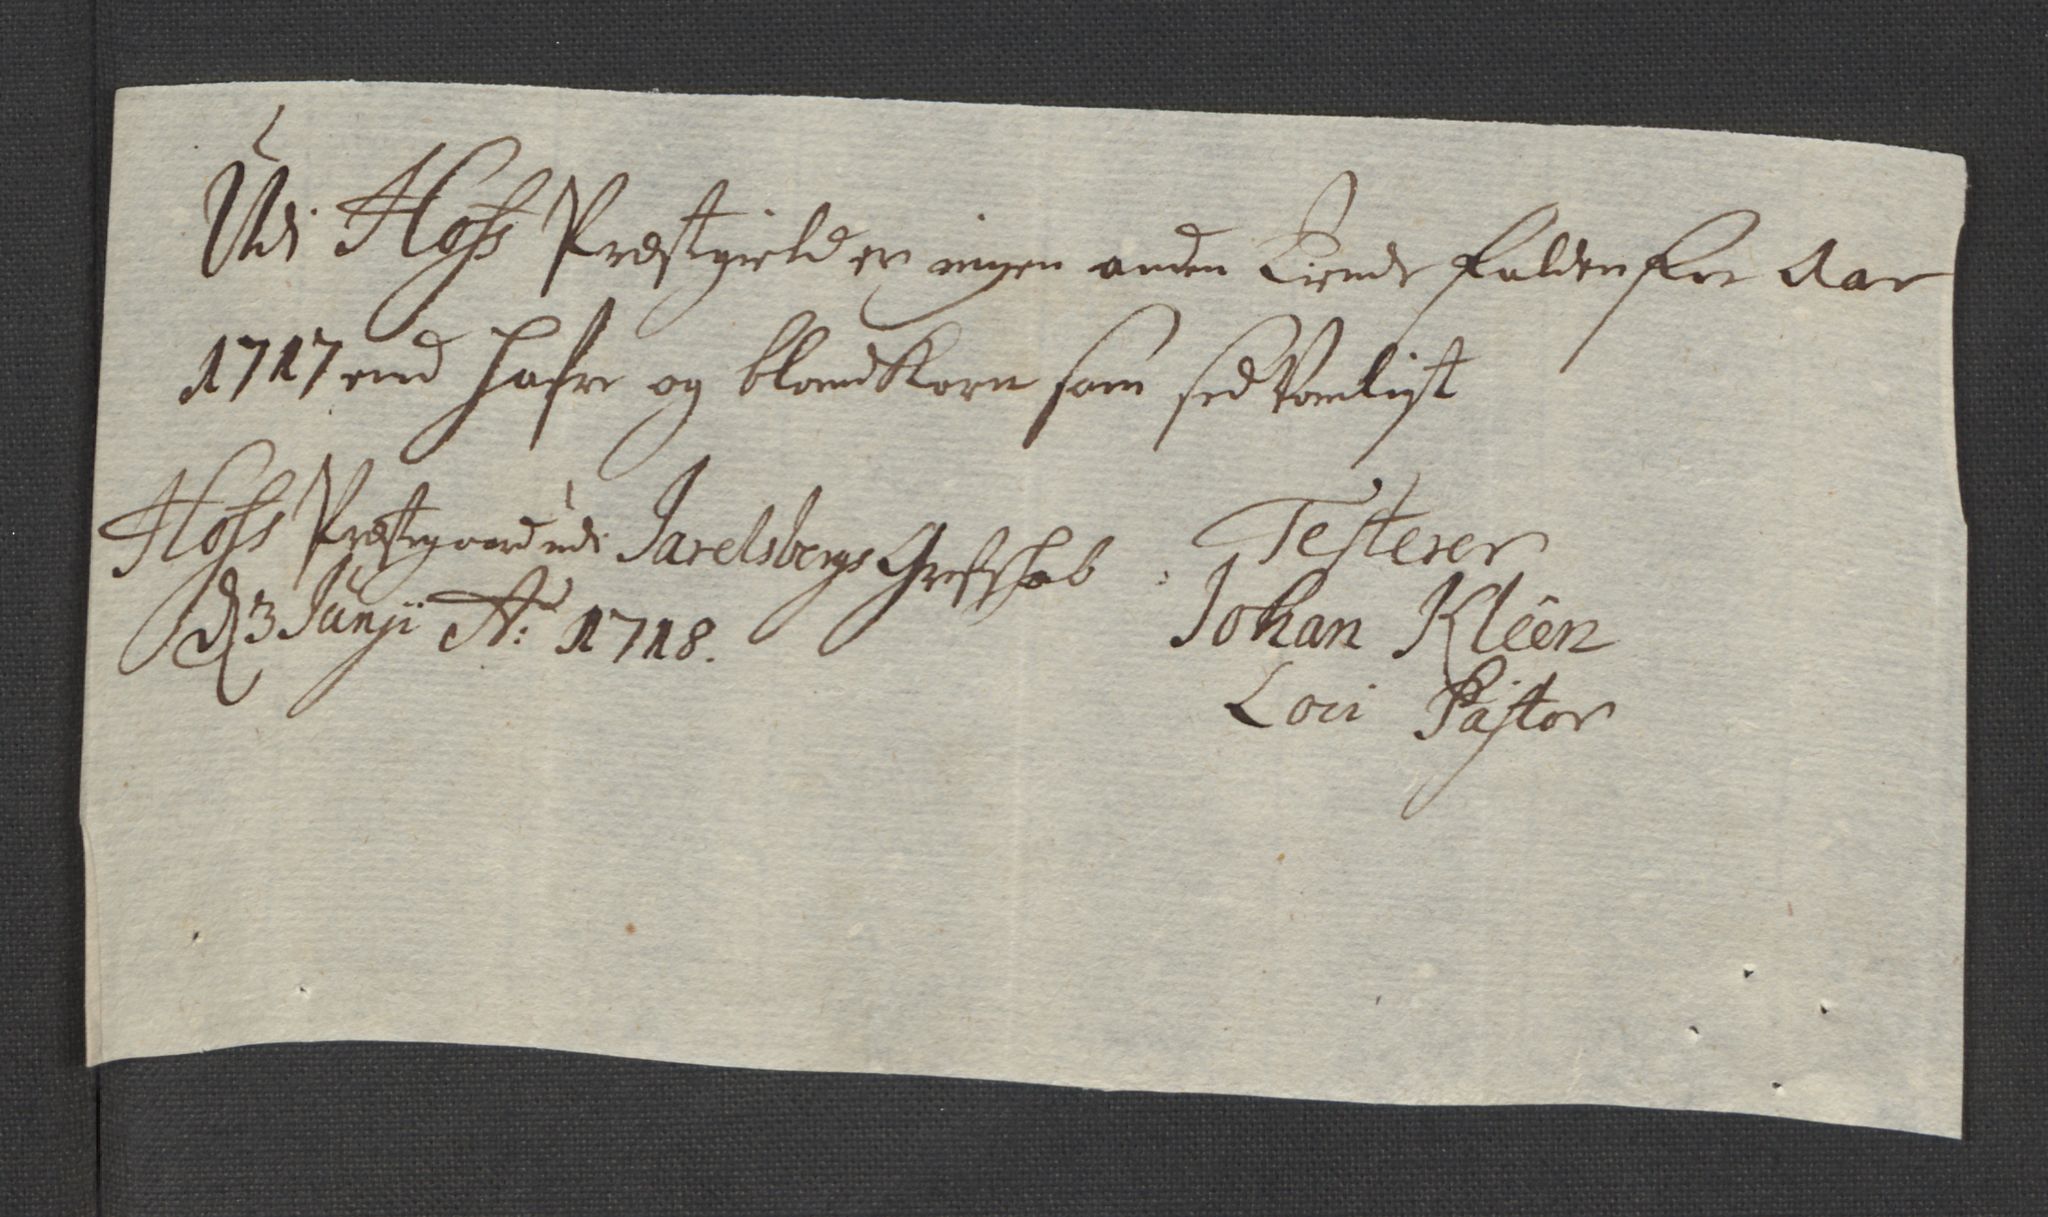 Udi Hofs Præstgield er ingen anden Tiende falden for Aar
1717 end Hafre og blandKorn som sedvanligt
Hofs Præstegaard udi Jarelsbergs Grefskab
d 3 Junji Ao: 1718.
Testerer
Johan Kleen
Loci Pastor